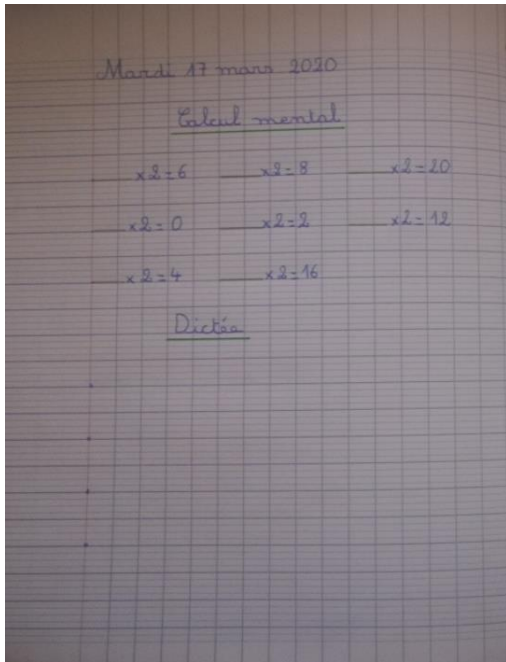 Mardi 17 mars 2020
Calcul mental
____ x2=6 ____ x2=8 ____ x2=20
____ x2=0 ____ x2=2 ____ x2=12
____ x2=4 ____ x2=16
Dictée